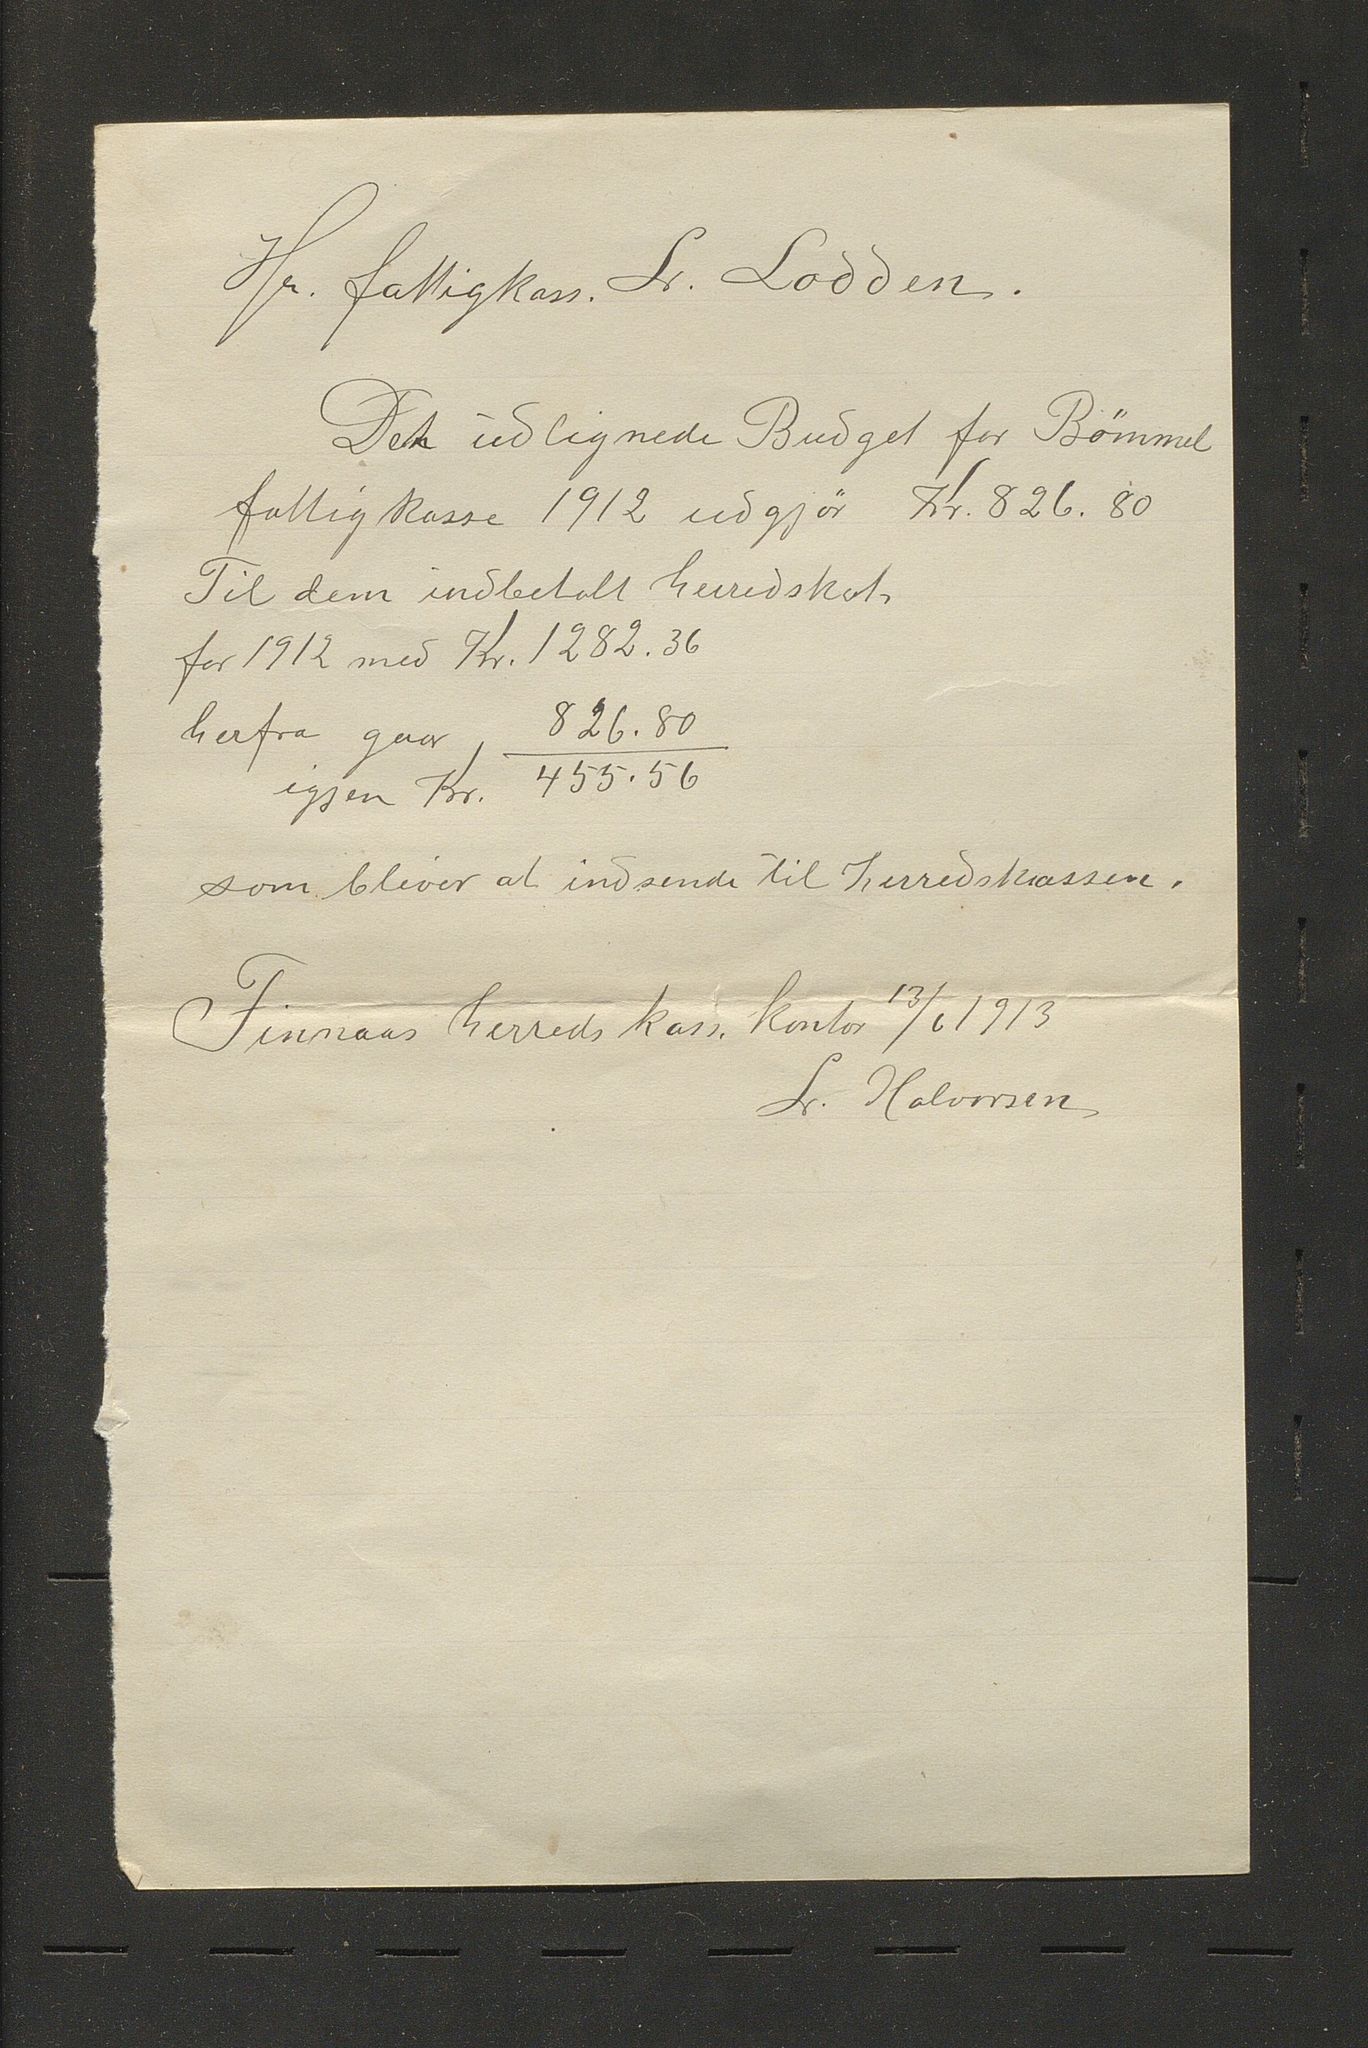 Hr. fattigkass. Sr. Lodden.
Det udlignede Budget for Bömmel
fattigkasse 1912 udgjör Kr. 826.80
Til dem indbetalt herredskat
for 1912 med Kr. 1282.36
herfra gaar 826.80
igjen Kr. 455.56
som bliver at indsende til herredskassen.
Finnaas herredskass. kontor 13/6 1913
Sr. Halvorsen